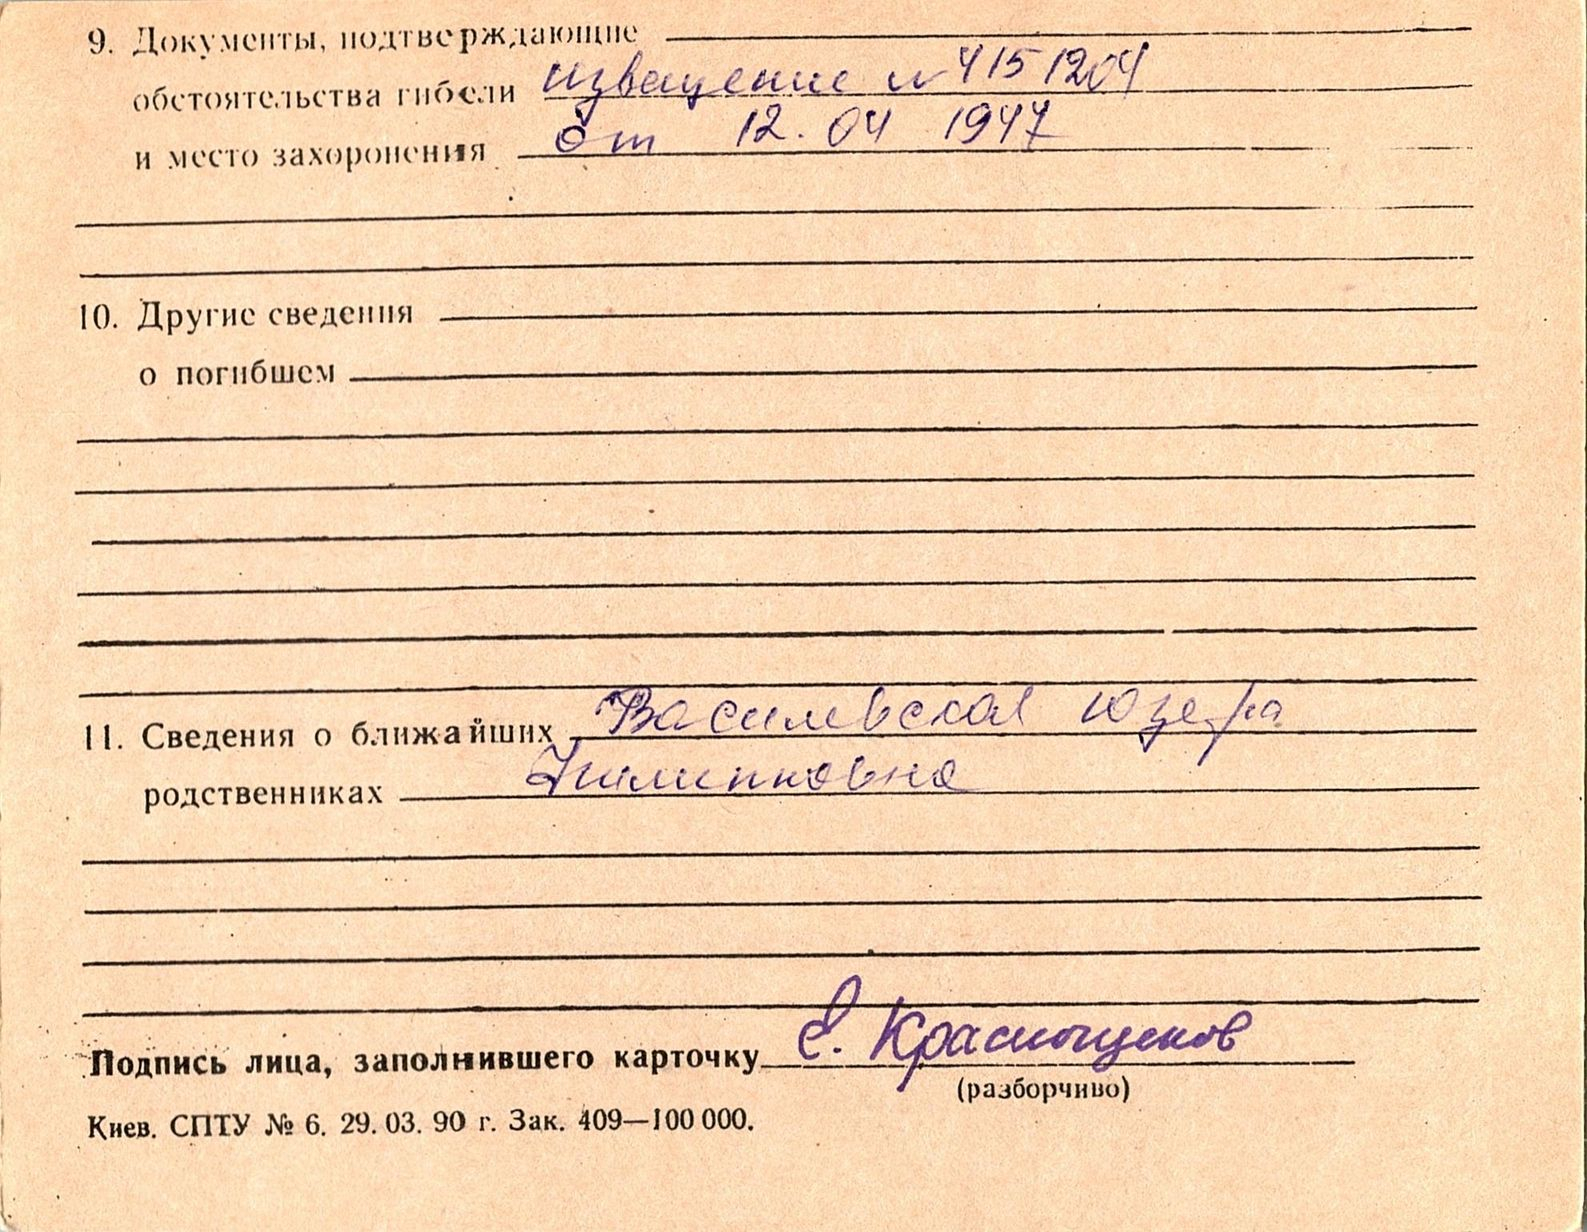 9. Документы, подтверждающие
обстоятельства гибели извещение № 4151204
и место захоронения от 12.04 1947
10. Другие сведения
о погибшем
11. Сведения о ближайших Василевская Юзефа
родственниках Филипповна
Подпись лица, заполнившего карточку Е. Краснощеков
(разборчиво)
Киев. СПТУ № 6. 29. 03. 90 г. Зак. 409—100 000.